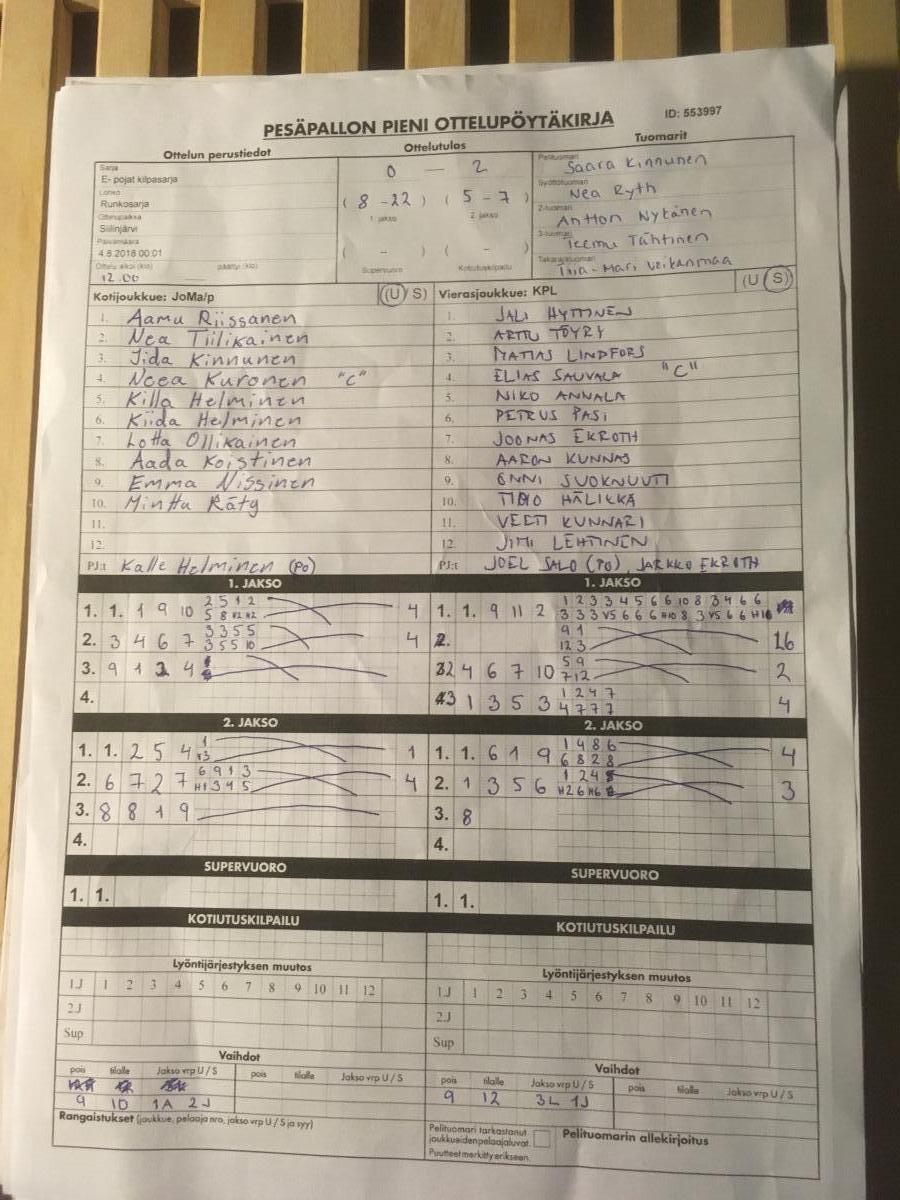 PESÄPALLON PIENI OTTELUPÖYTÄKIRJA
ID: 553997
Ottelun perustiedot
Ottelutulos
Tuomarit
Sarja
E- pojat kilpasarja
Lohko
Runkosarja
Ottelupaikka
Siilinjärvi
Päivämäärä
4.8.2018 00:01
Ottelu alkoi (klo) päättyi (klo)
12.00
0 — 2
( 8 - 22 ) ( 5 - 7 )
1. jakso 2. jakso
( - ) ( - )
Supervuoro Kotiutuskilpailu
Pelituomari
Saara Kinnunen
Syöttötuomari
Nea Ryth
2-tuomari
Antton Nykänen
3-tuomari
Teemu Tähtinen
Takarajatuomari
Tiia-Mari Veikanmaa
Kotijoukkue: JoMa/p (U / S)
1. Aamu Riissanen
2. Nea Tiilikainen
3. Iida Kinnunen
4. Neea Kuronen "C"
5. Killa Helminen
6. Kiida Helminen
7. Lotta Ollikainen
8. Aada Koistinen
9. Emma Nissinen
10. Minttu Räty
11.
12.
PJ:t Kalle Helminen (PO)
Vierasjoukkue: KPL (U / S)
1. JALI HYTTINEN
2. ARTTU TÖYRY
3. MATIAS LINDFORS
4. ELIAS SAUVALA "C"
5. NIKO ANNALA
6. PETRUS PASI
7. JOONAS EKROTH
8. AARON KUNNAS
9. ONNI SUOKNUUTI
10. HÄLIKKÄ
11. VEETI KUNNARI
12. JIMI LEHTINEN
PJ:t JOEL SALO (PO), JARKKO EKROTH
1. JAKSO
1. 1. 1 9 10 2 5 1 2 4
5 8
2. 3 4 6 7 3 3 5 5 4
3 5 5 10
3. 9 1 2 4
4.
1. JAKSO
1. 1. 9 11 2 1 2 3 3 4 5 6 6 10 8 3 4 6 6
3 3 3 V5 6 6 6 H10 8 3 V5 6 6 H10
2. 9 1 16
12 3
2 4 6 7 10 5 9 2
7 12
3 1 3 5 3 1 2 4 7 4
4 7 7 7
2. JAKSO
1. 1. 2 5 4 1 1
2. 6 7 2 7 6 9 1 3 4
H1 3 4 5
3. 8 8 1 9
4.
2. JAKSO
1. 1. 6 1 9 1 4 8 6 4
6 8 2 8
2. 1 3 5 6 1 2 4 3
H2 6 H6
3. 8
4.
SUPERVUORO
1. 1.
SUPERVUORO
1. 1.
KOTIUTUSKILPAILU
KOTIUTUSKILPAILU
Lyöntijärjestyksen muutos
1.J 1 2 3 4 5 6 7 8 9 10 11 12
2.J
Sup
Lyöntijärjestyksen muutos
1.J 1 2 3 4 5 6 7 8 9 10 11 12
2.J
Sup
Vaihdot
pois tilalle Jakso vrp U / S pois tilalle Jakso vrp U / S
9 10 1A 2J
Vaihdot
pois tilalle Jakso vrp U / S pois tilalle Jakso vrp U / S
9 12 3L 1J
Rangaistukset (joukkue, pelaaja nro, jakso vrp U / S ja syy)
Pelituomari tarkastanut
joukkueidenpelaajaluvat.
Puutteet merkitty erikseen.
Pelituomarin allekirjoitus